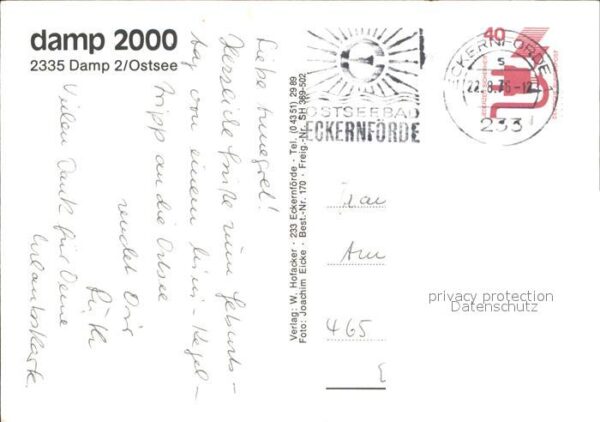 damp 2000
2335 Damp 2/Ostsee
Liebe Annegret!
Herzliche Grüße zum Geburts-
tag von einem Mini-Kegel-
tripp an die Ostsee
sendet Dir
Vielen Dank für Deine
Urlaubskarte.
Verlag: W. Hofacker · 233 Eckernförde · Tel. (0 43 51) 29 89
Foto: Joachim Eicke · Best.-Nr. 170 · Freig.-Nr. SH 369-502
OSTSEEBAD
ECKERNFÖRDE
ECKERNFÖRDE 1
s
22.8.76-12
233
40
Frau
Am
465
privacy protection
Datenschutz